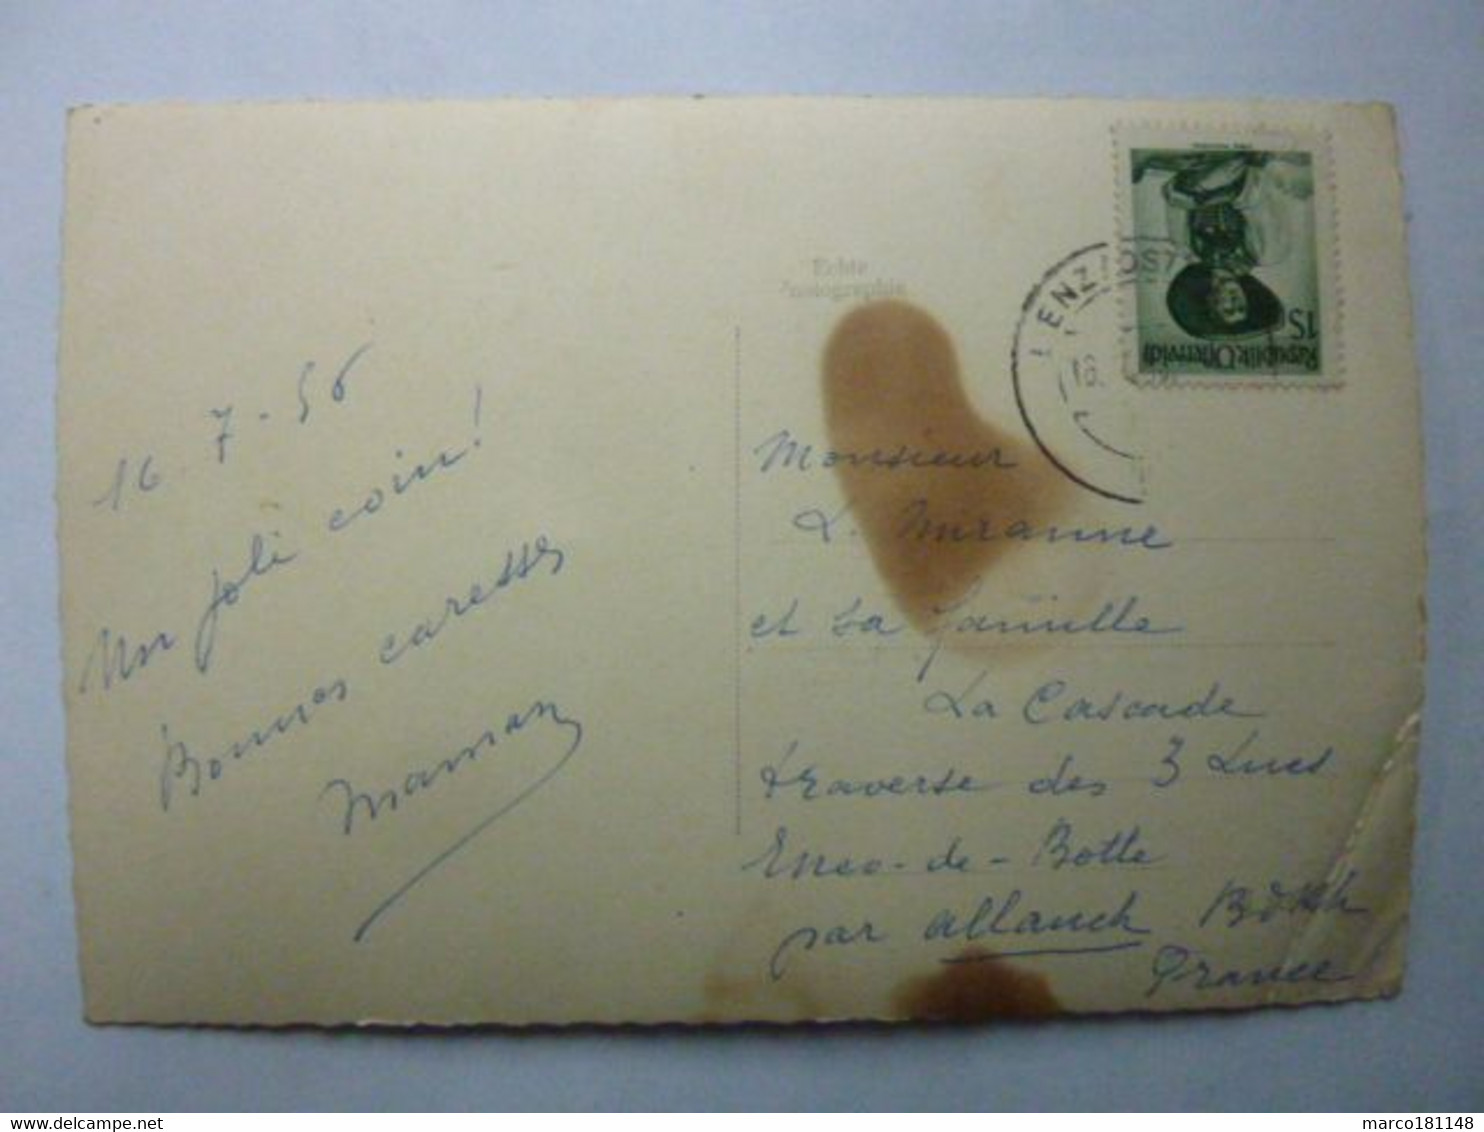 16.7.56
Un joli coin!
Bonnes caresses
Maman
Echte
Photographie
LIENZ OSTTIROL
1S
Republik Österreich
Monsieur
L. Miranne
et sa famille
La Cascade
traverse des 3 Lucs
Enco-de-Botte
par Allauch B d Rh
France
marco181148